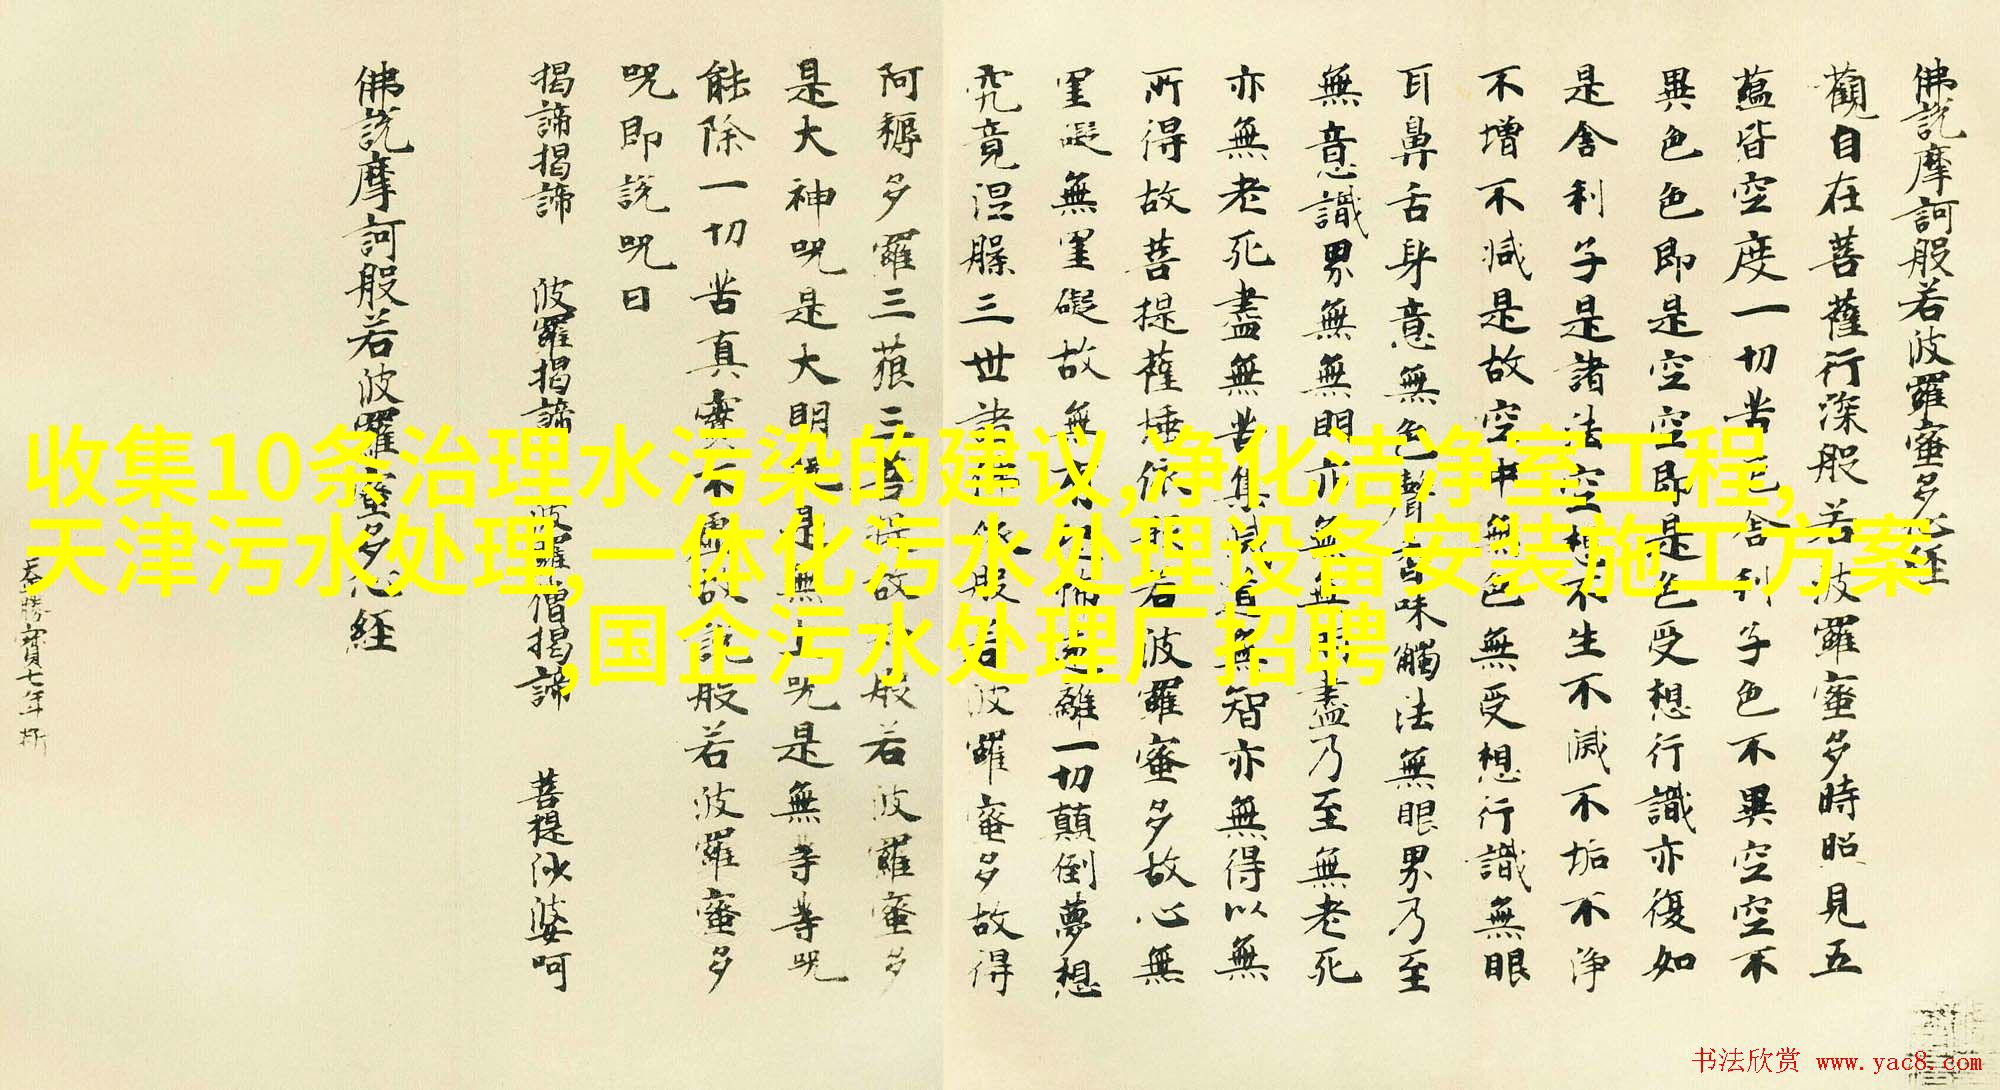 佛説摩訶般若波羅蜜多心経
觀自在菩薩行深般若波羅蜜多時照見五
蘊皆空度一切苦厄舍利子色不異空空不
異色色即是空空即是色受想行識亦復如
是舍利子是諸法空相不生不滅不垢不浄
不增不減是故空中無色無受想行識無眼
耳鼻舌身意無色聲香味觸法無眼界乃至
無意識界無無明亦無無明盡乃至無老死
亦無老死盡無苦集滅道無智亦無得以無
所得故菩提薩埵依般若波羅蜜多故心無
罣礙無罣礙故無有恐怖遠離一切顛倒夢想
究竟涅槃三世諸佛依般若波羅蜜多故得
阿耨多羅三藐三菩提故知般若波羅蜜多
是大神呪是大明呪是無上呪是無等等呪
能除一切苦真實不虛故説般若波羅蜜多
呪即説呪曰
揭諦揭諦 波羅揭諦 波羅僧揭諦 菩提娑婆呵
佛説摩訶般若波羅蜜多心経
天勝寶七年
收集10条治理水污染的建议,净化洁净室工程,
天津污水处理,一体化污水处理设备安装施工方案
,国企污水处理厂招聘
书法欣赏 www.yac8.com